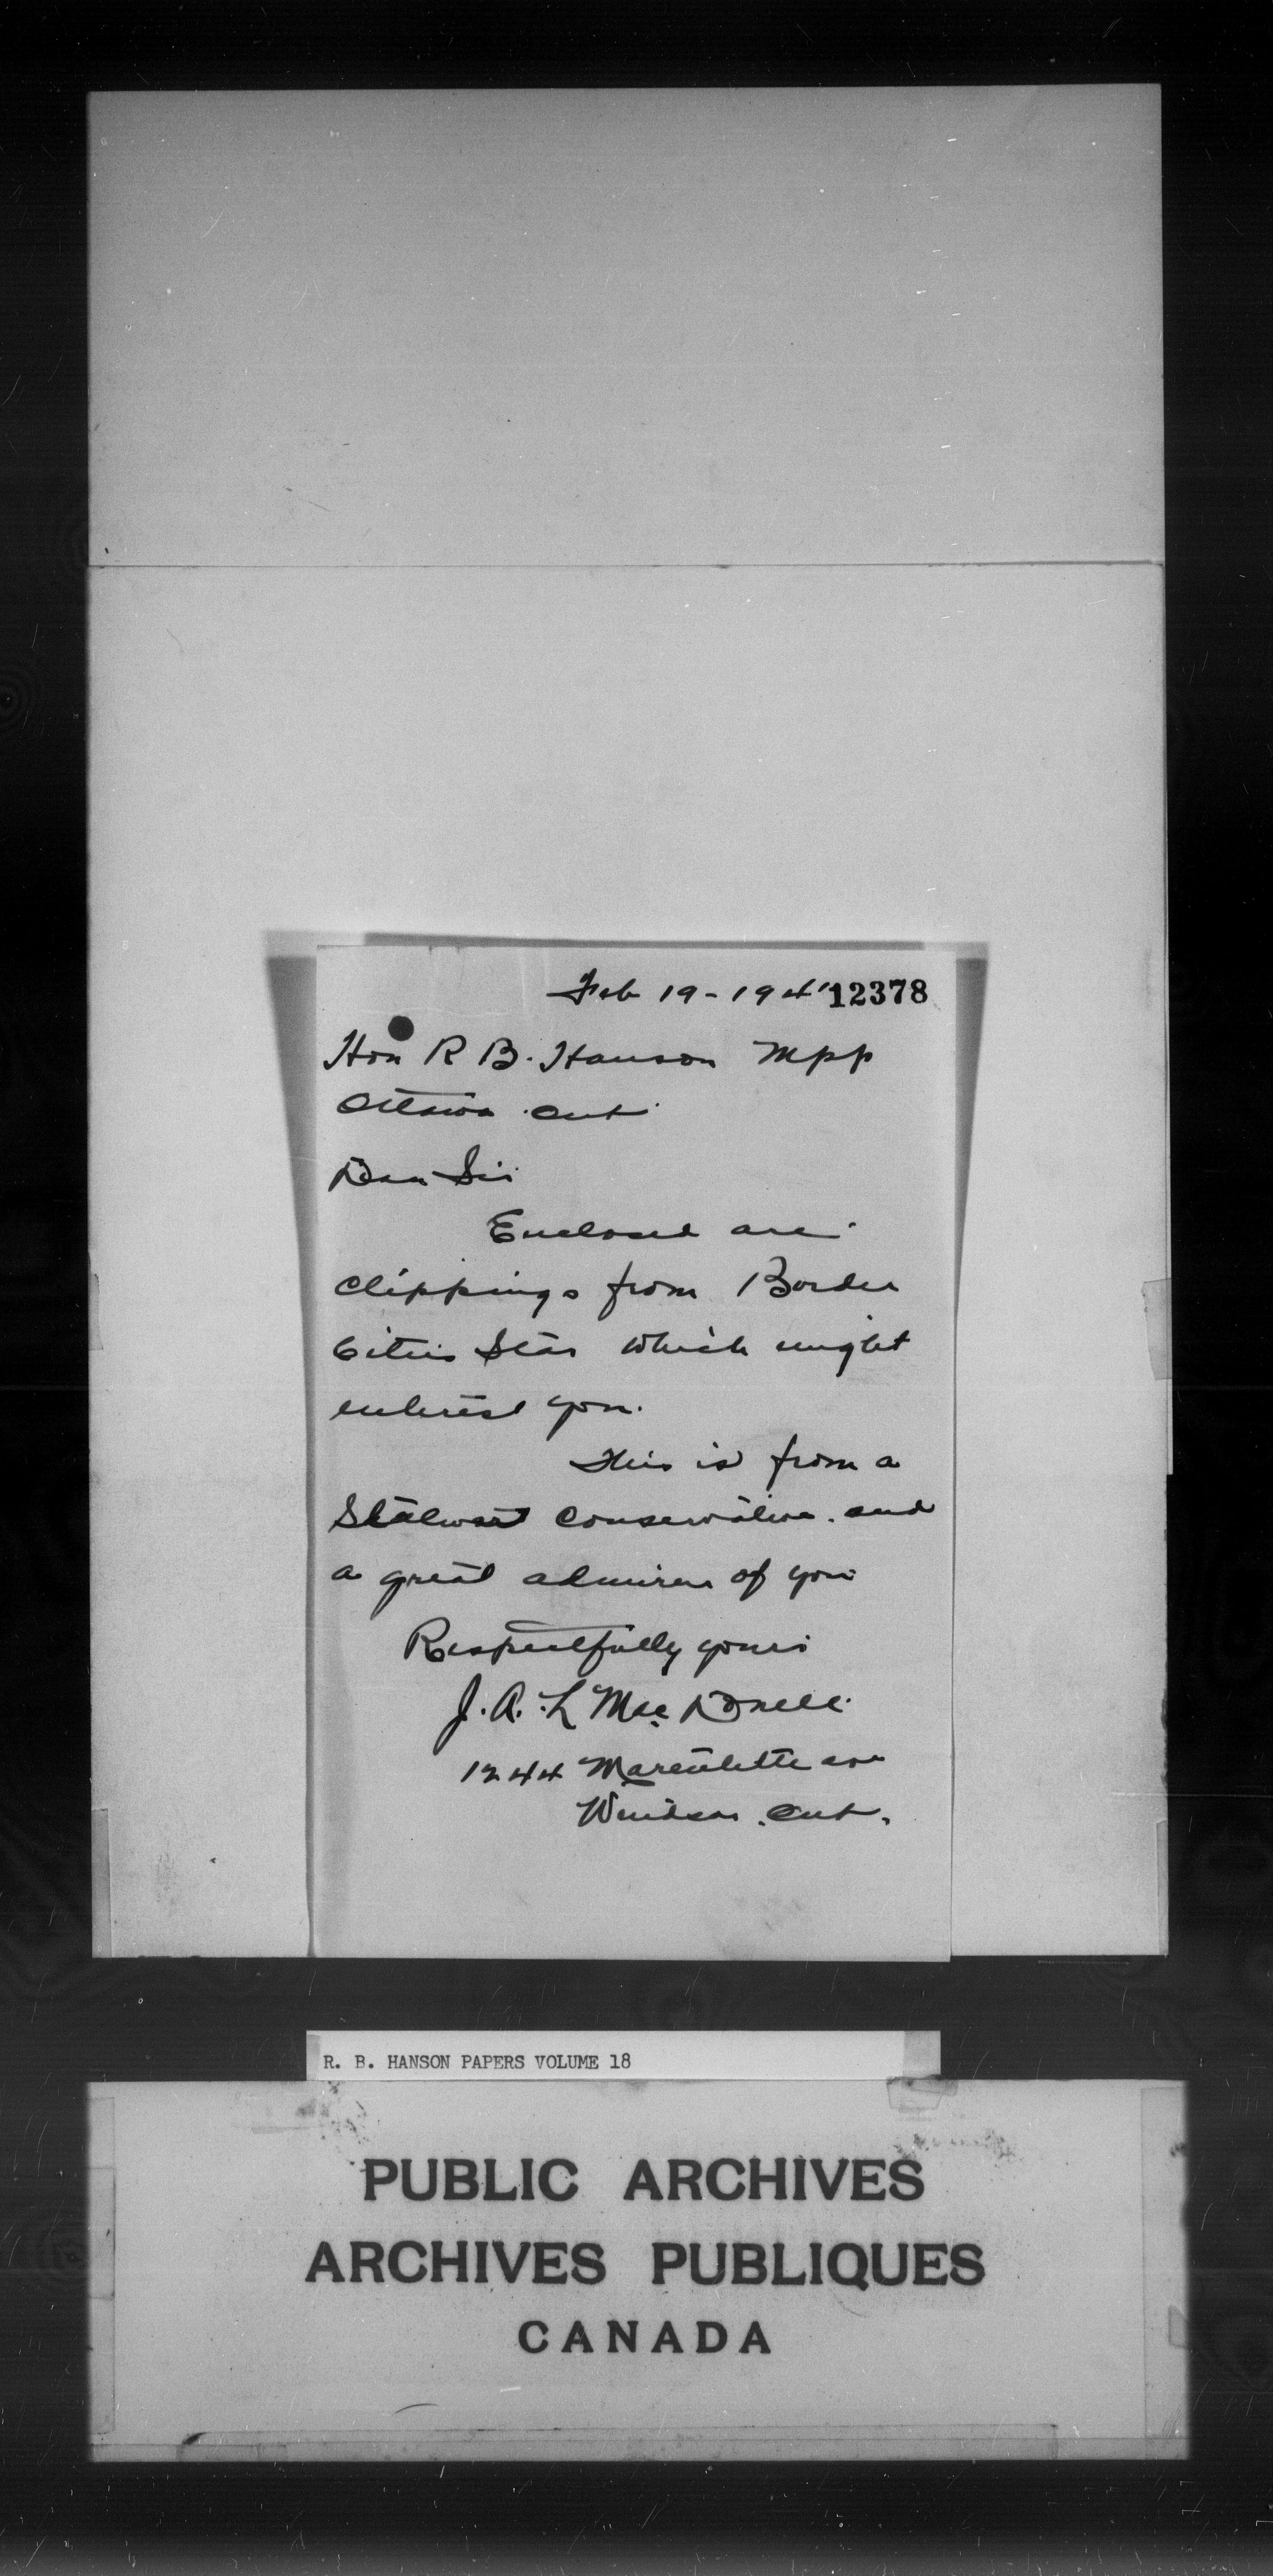 Feb 19-1941 12378
Hon R B. Hanson MPP
Ottawa. Ont.
Dear Sir
Enclosed are
clippings from Border
Cities Star which might
interest you.
This is from a
Stalwart Conservative. and
a great admirer of you
Respectfully yours
J. A. L Mac Donell
1244 Marentette ave
Windsor. Ont.
R. B. HANSON PAPERS VOLUME 18
PUBLIC ARCHIVES
ARCHIVES PUBLIQUES
CANADA